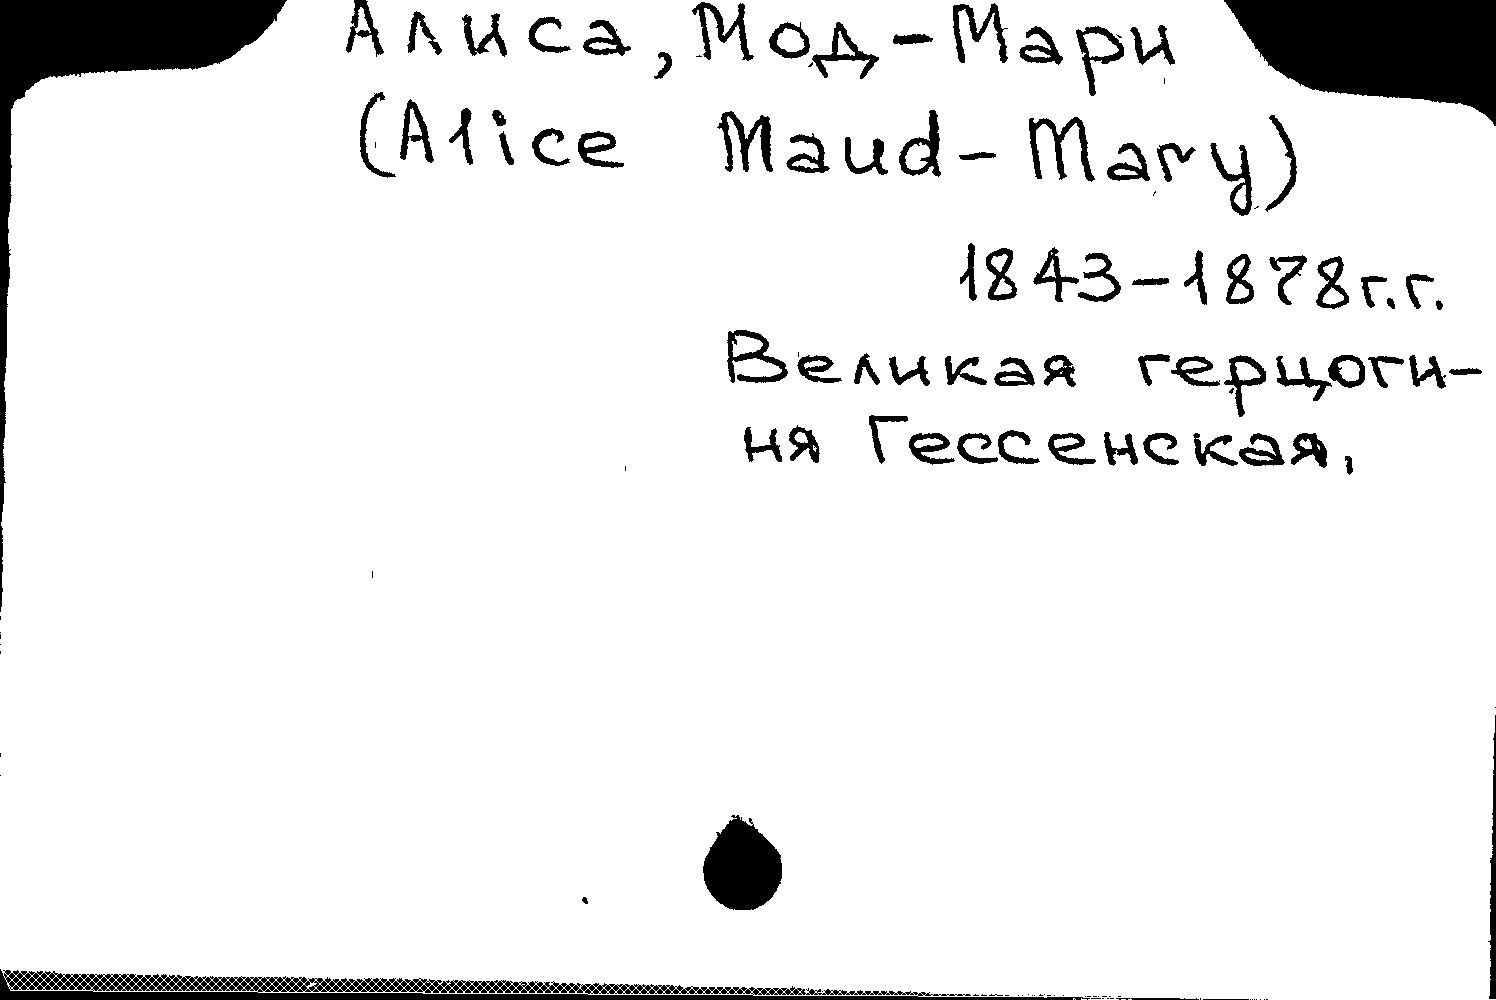 Алиса, Мод-Мари
(Alice Maud-Mary)
1843-1878г.г.
Великая герцоги-
ня Гессенская,